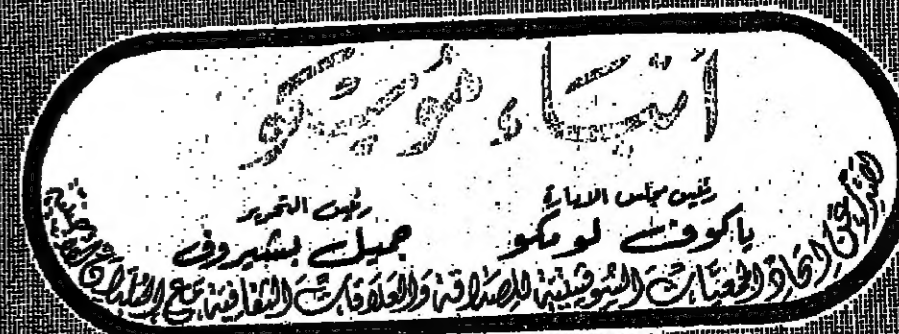 أنباء موسكو
رئيس مجلس الادارة
ياكوف لومكو
رئيس التحرير
جميل بشيروف
تصدر عن اتحاد الجمعيات السوفيتية للصداقة والعلاقات الثقافية مع البلدان